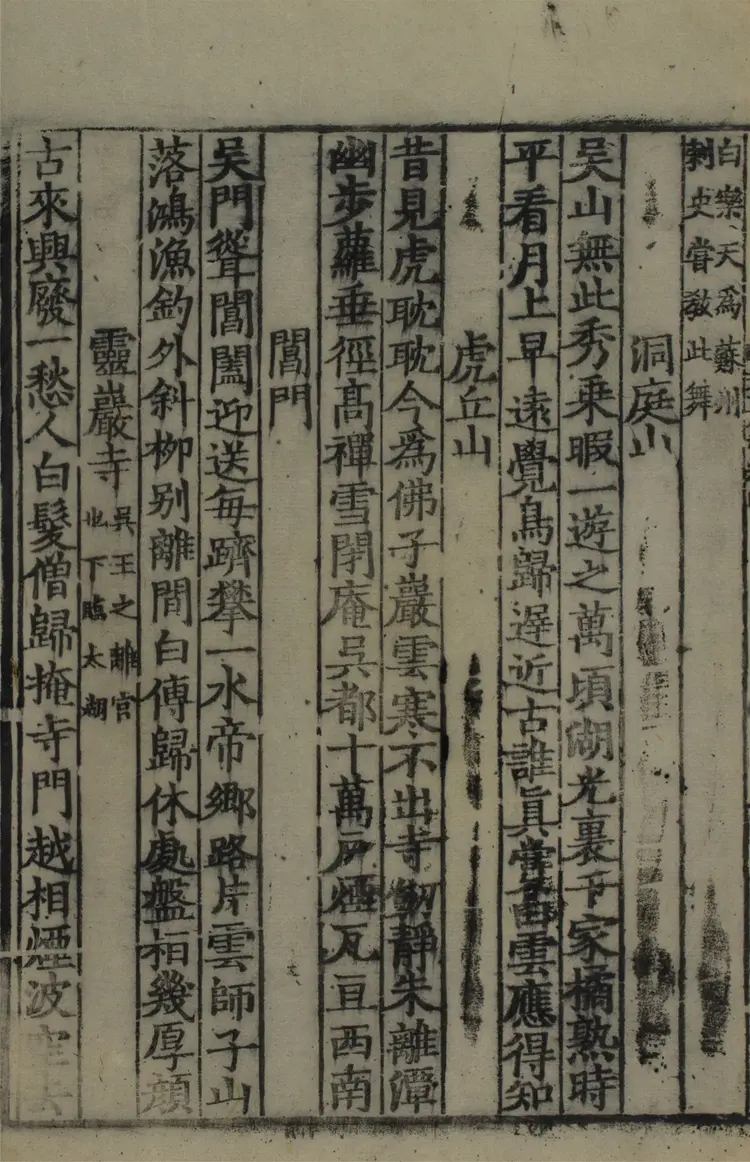 白樂天為蘇州
刺史嘗教此舞
洞庭山
吳山無此秀乗暇一遊之萬頃湖光裏千家橘熟時
平看月上早遠覺鳥歸遅近古誰真賞白雲應得知
虎丘山
昔見虎耽耽今為佛子巖雲寒不出寺劔靜朱離潭
幽步蘿垂徑高禪雪閉庵吳都十萬戶煙瓦亘西南
閶門
吳門聳閶闔迎送每躋攀一水帝鄉路片雲師子山
落鴻漁釣外斜栁別離間白傅歸休處盤桓幾厚顔
靈巖寺
吳王之離宮
也下瞰太湖
古來興廢一愁人白髮僧歸掩寺門越相煙波空去